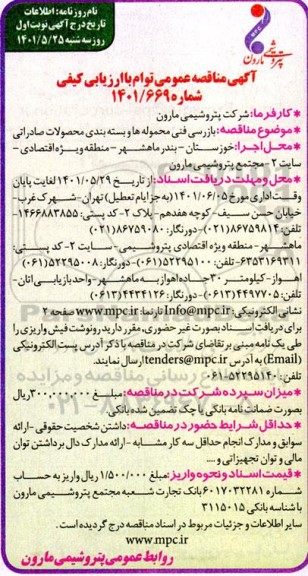 نام روزنامه: اطلاعات
تاریخ درج آگهی نوبت اول
روز سه شنبه ۱۴۰۱/۵/۲۵
پتروشیمی مارون
آگهی مناقصه عمومی توام با ارزیابی کیفی
شماره ۱۴۰۱/۶۶۹
* کارفرما: شرکت پتروشیمی مارون
* موضوع مناقصه: بازرسی فنی محموله ها و بسته بندی محصولات صادراتی
* محل اجرا: خوزستان - بندر ماهشهر - منطقه ویژه اقتصادی -
سایت ۲ - مجتمع پتروشیمی مارون
* محل و مهلت دریافت اسناد: از تاریخ ۱۴۰۱/۰۵/۲۹ لغایت پایان
وقت اداری مورخ ۱۴۰۱/۰۶/۰۵ (به جز ایام تعطیل) تهران - شهرک غرب -
خیابان حسن سیف - کوچه هفدهم - پلاک ۲ - کد پستی: ۱۴۶۶۸۸۳۸۵۵ -
تلفن: ۸۶۷۵۹۸۱۴ (۰۲۱) - دورنگار: ۸۶۷۵۹۰۸۰ (۰۲۱)
ماهشهر - منطقه ویژه اقتصادی پتروشیمی - سایت ۲ - کد پستی:
۶۳۵۳۱۶۹۳۱۱ - تلفن: ۵۲۲۹۵۱۰۰ (۰۶۱) - دورنگار: ۵۲۲۹۵۰۰۸ (۰۶۱)
اهواز - کیلومتر ۳۰ جاده اهواز به ماهشهر - واحد بازیابی اتان -
تلفن: ۴۴۹۷۷۰۵ (۰۶۱۳) - دورنگار: ۴۴۳۴۱۲۶ (۰۶۱۳)
نشانی الکترونیکی: Info@mpc.ir تارنما: www.mpc.ir صفحه ۲
برای دریافت اسناد بصورت غیر حضوری، مقرر دارید رونوشت فیش واریزی را
طی یک نامه مبنی بر تقاضای شرکت در مناقصه با ذکر آدرس پست الکترونیکی
(Email) به آدرس tenders@mpc.ir ارسال نمایند.
تلفن: ۵۲۲۹۵۱۴۰-۰۶۱
* میزان سپرده شرکت در مناقصه: مبلغ ۳۰۰,۰۰۰,۰۰۰ ریال
بصورت ضمانت نامه بانکی یا چک تضمین شده بانکی
* حداقل شرایط حضور در مناقصه: داشتن شخصیت حقوقی - ارائه
سوابق و مدارک انجام حداقل سه کار مشابه - ارائه مدارک دال بر داشتن توان
مالی و توان تجهیزاتی و ....
* قیمت اسناد و نحوه واریز: مبلغ ۱/۵۰۰/۰۰۰ ریال واریز به حساب
شماره ۶۰۱۷۰۳۲۲۸۱ بانک تجارت شعبه مجتمع پتروشیمی مارون
با شناسه بانکی ۳۱۱۵۰۱۵
سایر اطلاعات و جزئیات مربوط در اسناد مناقصه درج گردیده است.
www.mpc.ir
روابط عمومی پتروشیمی مارون